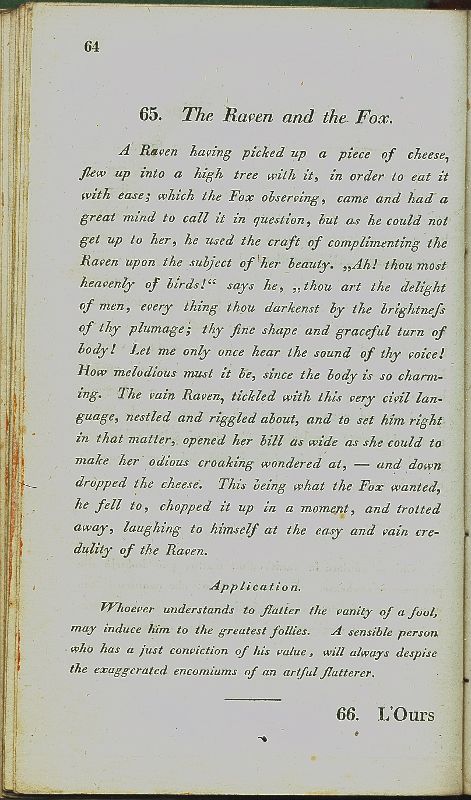 64
65. The Raven and the Fox.
A Raven having picked up a piece of cheese,
flew up into a high tree with it, in order to eat it
with ease; which the Fox observing, came and had a
great mind to call it in question, but as he could not
get up to her, he used the craft of complimenting the
Raven upon the subject of her beauty. „Ah! thou most
heavenly of birds!“ says he, „thou art the delight
of men, every thing thou darkenst by the brightneſs
of thy plumage; thy fine shape and graceful turn of
body! Let me only once hear the sound of thy voice!
How melodious must it be, since the body is so charm-
ing. The vain Raven, tickled with this very civil lan-
guage, nestled and riggled about, and to set him right
in that matter, opened her bill as wide as she could to
make her odious croaking wondered at, — and down
dropped the cheese. This being what the Fox wanted,
he fell to, chopped it up in a moment, and trotted
away, laughing to himself at the easy and vain cre-
dulity of the Raven.
Application.
Whoever understands to flatter the vanity of a fool,
may induce him to the greatest follies. A sensible person
who has a just conviction of his value, will always despise
the exaggerated encomiums of an artful flatterer.
66. L'Ours